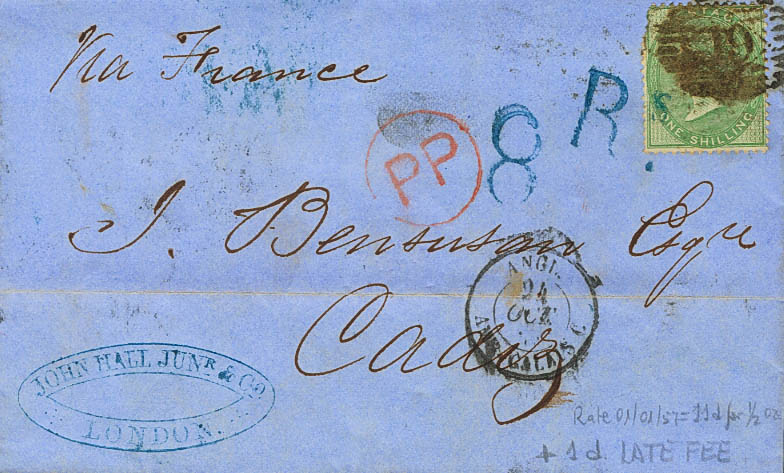 Via France
POSTAGE
ONE SHILLING
8 R.
PP
J. Bensusan Esqre
Cadiz
ANGL.
24
OCT
JOHN HALL JUNR & CO
LONDON.
Rate 01/01/57=11d for 1/2 oz
+ 1d. LATE FEE